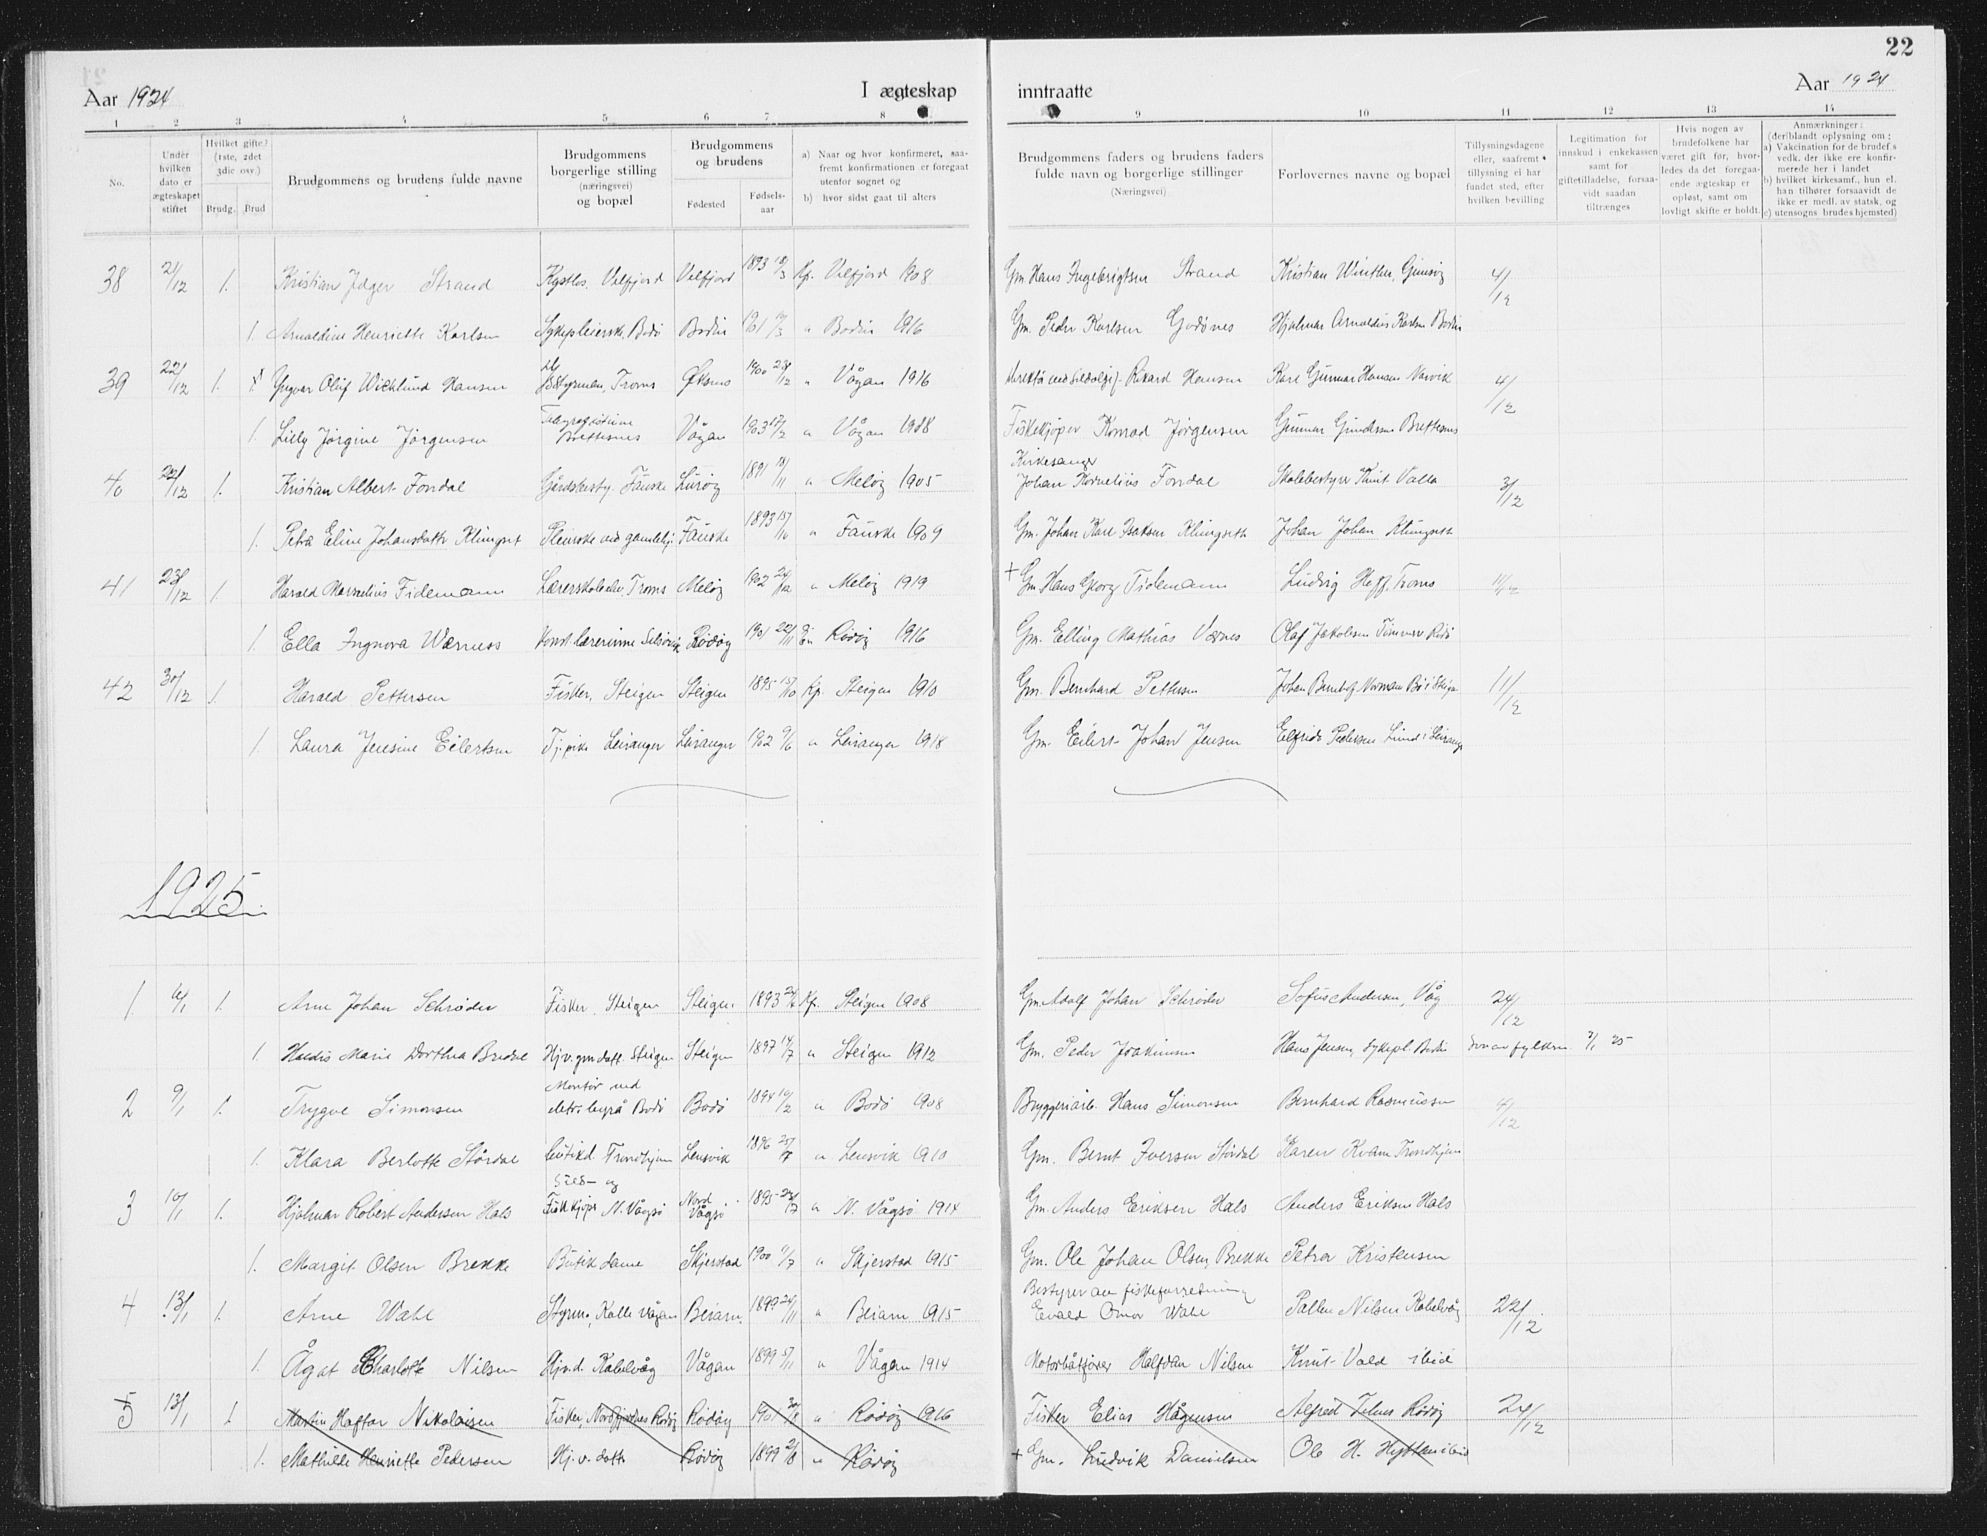 22
Aar 1924 I ægteskap inntraatte Aar 1924
1 2 3 4 5 6 7 8 9 10 11 12 13 14
No.
Under hvilken dato er ægteskapet stiftet
Hvilket gifte? (1ste, 2det 3die osv.)
Brudg. Brud
Brudgommens og brudens fulde navne
Brudgommens borgerlige stilling (næringsvei) og bopæl
Brudgommens og brudens
Fødested Fødsels-aar
a) Naar og hvor konfirmeret, saafremt konfirmationen er foregaat utenfor sognet og
b) hvor sidst gaat til alters
Brudgommens faders og brudens faders fulde navn og borgerlige stillinger (Næringsvei)
Forlovernes navne og bopæl
Tillysningsdagene eller, saafremt tillysning ei har fundet sted, efter hvilken bevilling
Legitimation for innskud i enkekassen samt for giftetilladelse, forsaavidt saadan tiltrænges
Hvis nogen av brudefolkene har været gift før, hvorledes da det foregaaende ægteskap er opløst, samt om lovligt skifte er holdt.
Anmærkninger: (deriblandt oplysning om:
a) Vakcination for de brudef.s vedk. der ikke ere konfirmerede her i landet
b) hvilket kirkesamf., hun el. han tilhører forsaavidt de ikke er medl. av statsk. og
c) utensogns brudes hjemsted)
38 21/12 1. Kristian Jdger Strand Velfjord Velfjord 1893 Kp. Velfjord 1908 Gm. Hans Ingebrigtsen Strand Kristian Winther, Gimsøy 4/12
1. Arnoldine Henriette Karlsen Bodø Bodin " Bodin 1916 Gm. Peder Karlsen Godønes Hjalmar Arnoldus Karlsen Bodin
39 22/12 1. Yngvar Oluf Wicklund Hansen Styrman, Troms Øksnes 1900 28/12 " Vågan 1916 Rikard Hansen Karl Gunnar Hansen Narvik 4/12
1. Lilly Jørgine Jørgensen Brettesnes Vågan 1903 17/2 " Vågan 1918 Fiskekjøper Konrad Jørgensen Gunnar Gundersen Brettesnes
40 22/12 1. Kristian Albert Fondal Gårdsbesty. Fauske Lurøy 1891 18/11 " Meløy 1905 Kirkesanger Johan Kornelius Fondal Skolebestyrer Knut Valla 3/12
1. Petra Eline Johansdatter Klungset Pleierske ved gamlehj. Fauske 1893 15/10 " Fauske 1909 Gm. Johan Karl Isaksen Klungseth Johan Johan Klungseth
41 23/12 1. Harald Marselius Tidemann Lærerskoleelev, Troms Meløy 1902 " Meløy 1919 + Gm. Hans Georg Tidemann Ludvig Hoff, Troms 11/12
1. Ella Ingnora Wærness Konst. lærerinne Selsøvik Rødøy 1901 22/11 Rødøy 1916 Gm. Elling Mathias Værnes Olaf Jakobsen
42 30/12 1. Harald Pettersen Fisker, Steigen Steigen 1895 15/10 Kp. Steigen 1910 Gm. Bernhard Pettersen Johan Bernhof Norman Bø i Steigen 11/12
1. Laura Jensine Eilertsen Tj.pike Leiranger Leiranger 1902 9/6 " Leiranger 1918 Gm. Eilert Johan Jensen Elfrida Pedersen Lund i Leiranger
1925.
1 6/1 1. Arne Johan Schrøder Fisker, Steigen Steigen 1893 Kp. Steigen 1908 Gm. Adolf Johan Schrøder Sofus Andersen, Våg 24/12
1. Haldis Marie Dorthea Bredal Hj.v. gm.datt. Steigen Steigen 1897 14/7 " Steigen 1912 Gm. Peder Joakimsen Hans Jensen, Sykepl. Bodin 3/1 25
2 9/1 1. Trygve Simonsen Montør ved elektr. byrå Bodø Bodø 1894 10/2 " Bodø 1908 Bryggeriarb. Hans Simonsen Bernhard Rasmussen 4/12
1. Klara Berlotte Størdal Butikd. Trondhjem Lensvik 1896 25/7 " Lensvik 1910 Gm. Bernt Iversen Stördal Karen Kvam Trondhjem
3 10/1 1. Hjalmar Robert Andersen Hals Sild- og Fiskekjøper N. Vågsø Nord Vågsø 1895 " N. Vågsø 1914 Gm. Anders Eriksen Hals Anders Eriksen Hals
1. Margit Olsen Brekke Butikdame Skjerstad 1900 11/7 " Skjerstad 1915 Gm. Ole Johan Olsen Brekke Petra Kristensen
4 13/1 1. Arne Wahl Styrm., Kalle Vågan Beiarn 1899 24/11 " Beiarn 1915 Bestyrer av fiskeforretning Evald Wahl Nilsen Kabelvåg 22/12
1. Ågot Charlotte Nilsen Hj.v.d. Kabelvåg Vågan 1899 5/11 " Vågan 1914 Motorbåtfører Halfdan Nilsen Knut Vold ibid
5 13/1 1 Martin Haftor Nikolaisen Fisker, Nordfjordnes Rødøy Rødøy 1901 " Rødøy 1916 Fisker Elias Hågensen Alfred Telnes Rødøy 24/12
1. Mathilde Henriette Pedersen Hj.v. datter Rødøy 1899 2/8 " Rødøy + Gm. Ludvik Danielsen Ole H. Hytten ibid